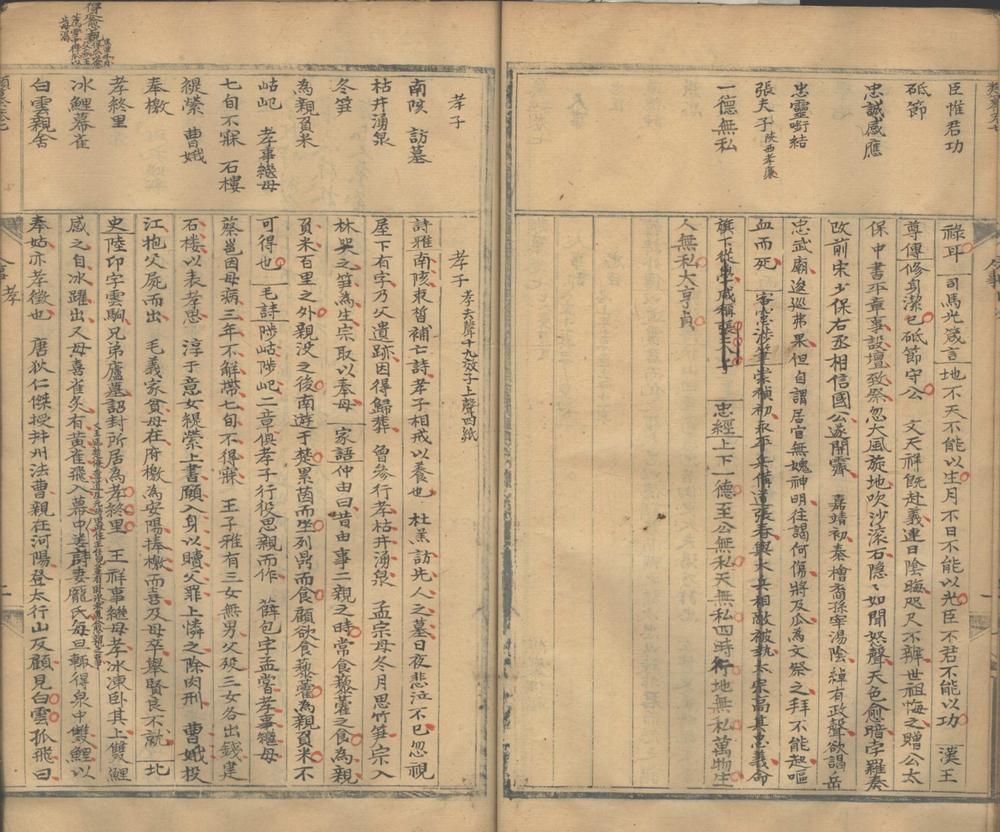 臣惟君功
砥節
忠誠感應
忠靈嘶結
張夫子陝西孝廉
一德無私
祿耳 司馬光箴言地不天不能以生月不日不能以光臣不君不能以功 漢王
尊傳修身潔己砥節守公 文天祥既赴義連日陰晦咫尺不辨世祖悔之贈公太
保中書平章事設壇致祭忽大風旋地吹沙滾石隱〻如聞怒聲天色愈暗字羅奏
改前宋少保右丞相信國公遂開霽 嘉靖初秦檜裔孫宰湯陰綽有政聲欲謁岳
忠武廟逡巡弗果但自謂居官無媿神明往謁何傷將及瓜為文祭之拜不能起嘔
血而死 客窓涉筆崇禎初永平兵備道張春與大兵相敵被執太宗高其忠義命
旗下從學咸稱張夫子 忠經上下一德至公無私天無私四時行地無私萬物生
人無私大亨貞
孝子
南陔 訪墓
枯井湧泉
冬笋
為親負米
岵屺 孝事繼母
七旬不寐 石樓
緹縈 曹娥
奉檄
孝終里
冰鯉幕雀
白雲親舍
孝子 孝去聲十九效子上聲四紙
詩雅南陔束皙補亡詩孝子相戒以養也 杜羔訪先人之墓日夜悲泣不已忽視
屋下有字乃父遺跡因得歸葬 曾參行孝枯井湧泉 孟宗母冬月思竹笋宗入
林哭之笋為生宗取以奉母 家語仲由曰昔由事二親之時常食藜藿之食為親
負米百里之外親没之後南遊于楚累茵而坐列鼎而食願欲食藜藿為親負米不
可得也 毛詩陟岵陟屺二章俱孝子行役思親而作 薛包字孟嘗孝事繼母
蔡邕因母病三年不解帶七旬不得寐 王子雅有三女無男父殁三女各出錢建
石樓以表孝思 淳于意女緹縈上書願入身以贖父罪上憐之除肉刑 曹娥投
江抱父屍而出 毛義家貧母在府檄為安陽捧檄而喜及母卒舉賢良不就 北
史陸卬字雲駒兄弟廬墓詔封所居為孝終里 王祥事繼母孝冰凍卧其上雙鯉
感之自冰躍出又母喜雀炙有黃雀飛入幕中姜詩妻龐氏每旦輒得泉中雙鯉以
奉姑亦孝徵也 唐狄仁傑授并州法曹親在河陽登太行山反顧見白雲孤飛曰